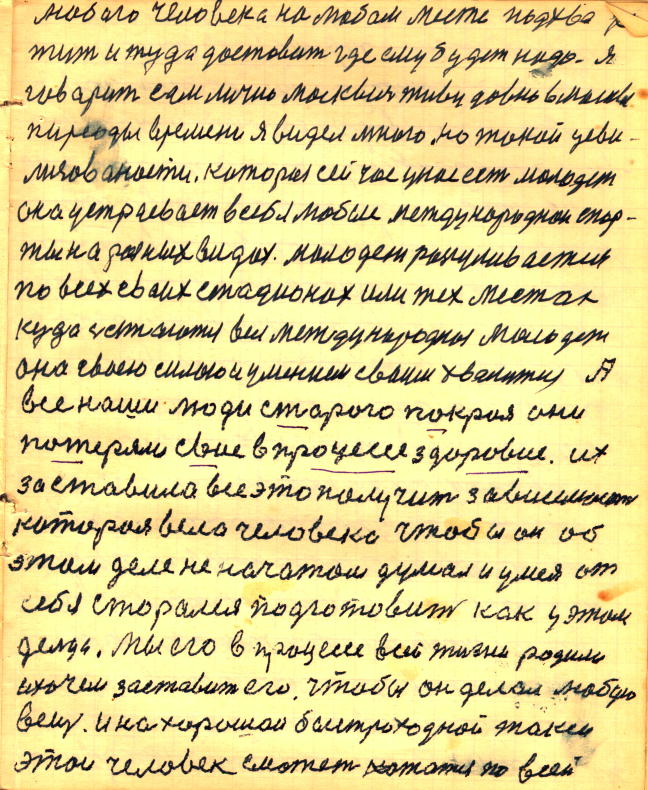 любого человека на любом месте подхва
тит и туда доставит где ему будет надо. Я
говарит сам лично москвич живу довно в москве
периоды времени я видел много, но такой цеви-
лизованости, которая сей час у нас есть молодеж
она устраевает в себя любые международнаи спор-
ты на разных видах. молодеж разгуливается
по всех своих стадионах или тех местах
куда естаются вся международная молодеж
она своею силою и умением своим хвалится А
все наши люди старого покроя они
потеряли свое в процессе здоровие. их
заставила все это получит зависимост
которая вела человека чтобы он об
этом деле не начатом думал и умея от
себя старался подготовит как у этом
делу. Мы его в процессе всей жизни родили
и хочем заставит его, чтобы он делал любую
вещ. и на хорошой быстроходной такси
этот человек сможет кататся по всей